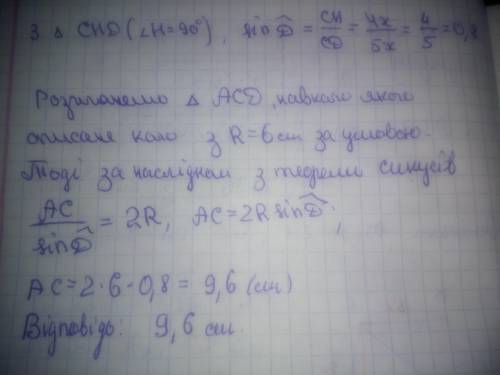 З △ CHD (∠H=90°), sin D̂ = CH/CD = 4x/5x = 4/5 = 0,8
Розглянемо △ ACD, навколо якого
описане коло з R=6 см за умовою.
Тоді за наслідком з теореми синусів
AC/sin D̂ = 2R, AC=2R sin D̂;
AC=2·6·0,8 = 9,6 (см)
Відповідь: 9,6 см.